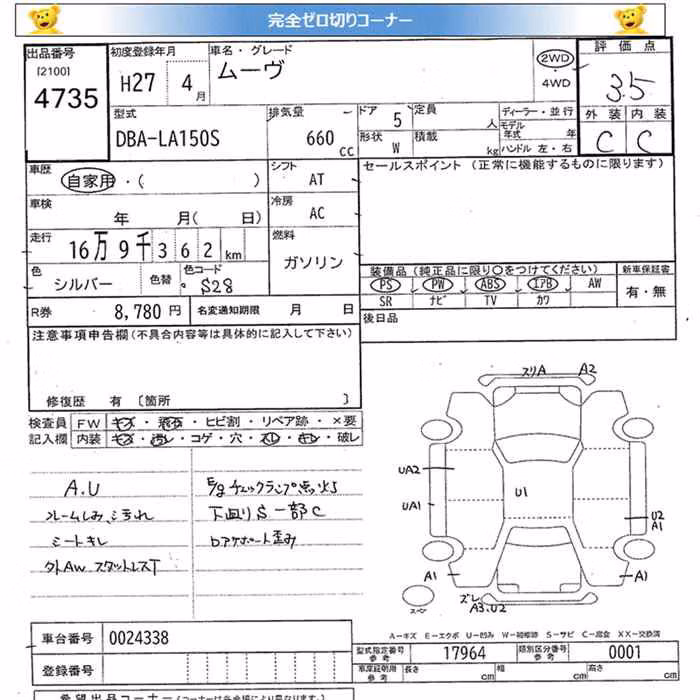 完全ゼロ切りコーナー
出品番号
[2100]
4735
初度登録年月
H27 4月
車名・グレード
ムーヴ
2WD
4WD
評価点
3.5
外装 内装
C C
型式
DBA-LA150S
排気量
660 CC
ドア 5
形状 W
定員 人
積載 kg
ディーラー・並行
モデル年式 年
ハンドル 左・右
車歴
自家用・( )
シフト
AT
セールスポイント (正常に機能するものに限ります)
車検
年 月( 日)
冷房
AC
走行
16万9千362km
燃料
ガソリン
色
シルバー
色替
色コード
S28
装備品(純正品に限り○をつけてください)
PS PW ABS エアB AW
SR ナビ TV カワ
新車保証書
有・無
R券 8,780円
名変通知期限 月 日
後日品
注意事項申告欄(不具合内容等は具体的に記入して下さい)
修復歴 有 [箇所 ]
検査員記入欄
FW キズ・飛石・ヒビ割・リペア跡・×要
内装 キズ・汚レ・コゲ・穴・スレ・キレ・破レ
A.U
シートキレ
外AW スタットレスT
E/gチェックランプ点灯
下回りS一部C
スリA A2
UA2
UA1
U1
U2
A1
A1
A1
スペア
ズレ
A3.U2
A-キズ E-エクボ U-凹み W-補修跡 S-サビ C-腐食 XX-交換済
車台番号 0024338
登録番号
型式指定番号 参考 17964
類別区分番号 参考 0001
車庫証明用 参考 長さ cm 幅 cm 高さ cm
希望出品コーナー